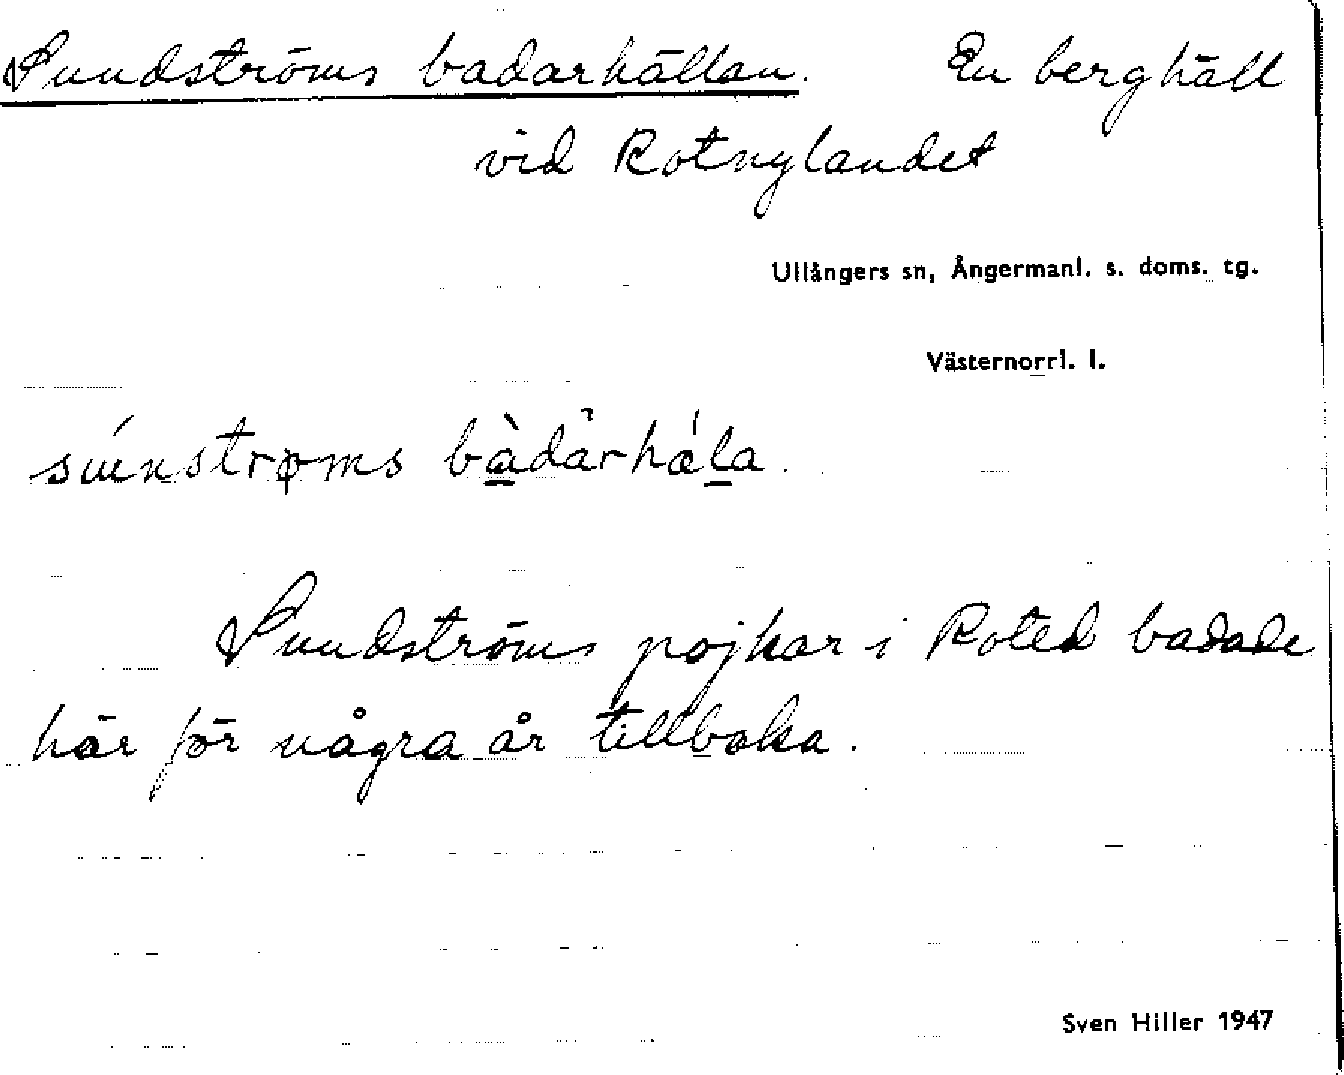 Sundströms badarhällan. En berghäll
vid Rotnylandet
Ullångers sn, Ångermanl. s. doms. tg.
Västernorrl. l.
súnstrøms bàdarhǽla.
Sundströms pojkar i Roted badade
här för några år tillbaka.
Sven Hiller 1947